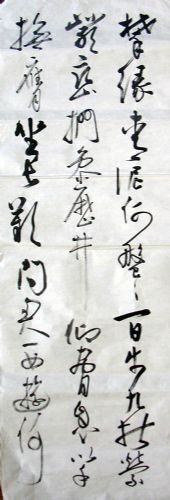 攀緣青泥何盤〻百步九折縈
巖巒捫參歷井仰脅息以手
撫膺坐長歎問君西遊何